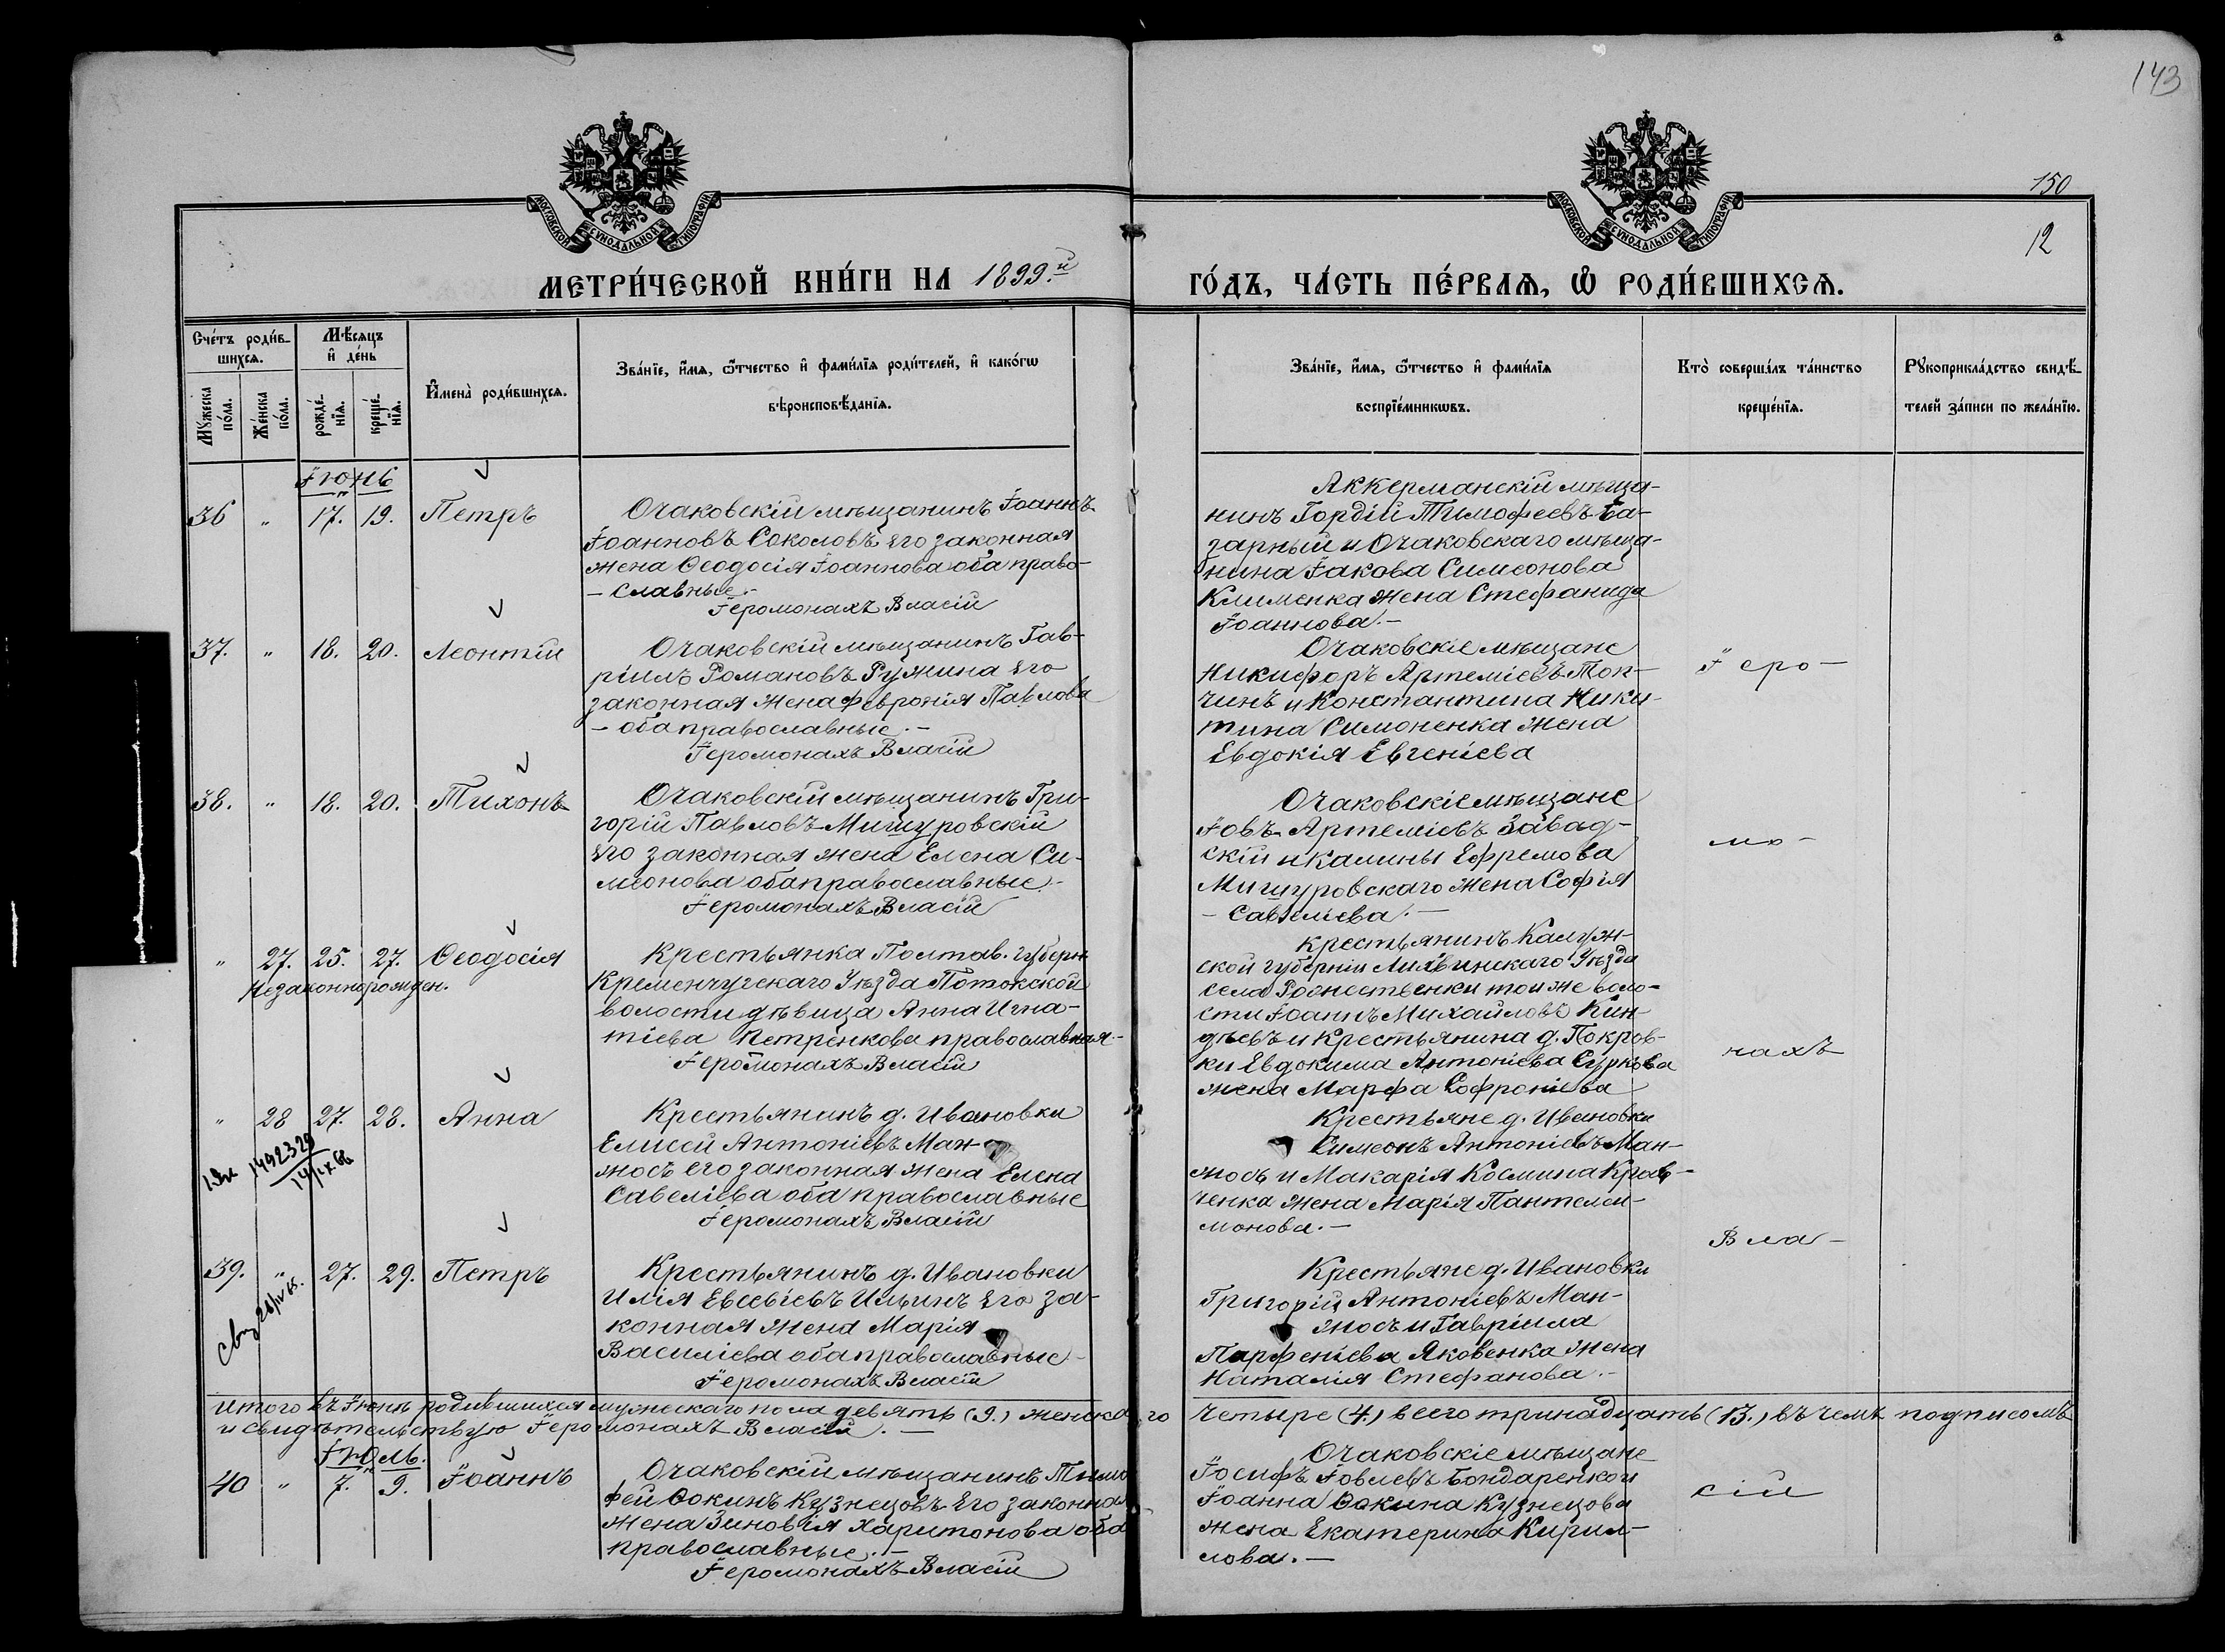 143
150
12
МОСКОВСКОЙ СѴНОДАЛЬНОЙ ТИПОГРАФІИ
МОСКОВСКОЙ СѴНОДАЛЬНОЙ ТИПОГРАФІИ
МЕТРИ́ЧЕСКОЙ КНИ́ГИ НА 1899.й
ГО́ДЪ, ЧА́СТЬ ПЕ́РВАѦ, Ѡ҆ РОДИ́ВШИХСѦ.
Сче́тъ роди́в-
шихсѧ.
Мѣ́сѧцъ
и҆ де́нь
Мꙋ́жеска по́ла.
Же́нска по́ла.
рожде́-нїѧ.
креще́-нїѧ.
И҆мена̀ роди́вшихсѧ.
Зва́нїе, и҆́мѧ, ѻ҆́тчество и҆ фами́лїѧ роди́телей, и҆ како́гѡ
вѣроисповѣ́данїѧ.
Зва́нїе, и҆́мѧ, ѻ҆́тчество и҆ фами́лїѧ
воспрїе́мникѡвъ.
Кто̀ соверша́лъ та́инство
креще́нїѧ.
Рꙋкоприкла́дство свидѣ́-
телей за́писи по жела́нїю.
Іюнь
36 „ 17. 19. Петръ
Очаковскій мѣщанинъ Іоаннъ
Іоанновъ Соколовъ его законная
жена Ѳеодосія Іоаннова оба право-
- славные.-
Іеромонахъ Власій
Аккерманскій мѣща-
нинъ Гордій Тимофеевъ Ба-
зарный и Очаковскаго мѣща-
нина Іакова Симеонова
Клименка жена Стефанида
Іоаннова.-
37. „ 18. 20. Леонтій
Очаковскій мѣщанинъ Гав-
ріилъ Романовъ Ружина его
законная жена Февронія Павлова
- оба православные.-
Іеромонахъ Власій
Очаковскіе мѣщане
Никифоръ Артеміевъ Топ-
чинъ и Константина Ники-
тина Симоненка жена
Евдокія Евгеніева
Іеро-
38. „ 18. 20. Тихонъ
Очаковскій мѣщанинъ Гри-
горій Павловъ Мишуровскій
его законная жена Елена Си-
меонова оба православные.-
Іеромонахъ Власій
Очаковскіе мѣщане
Іовъ Артеміевъ Завад-
скій и Калины Ефремова
Мишуровскаго жена Софія
- Савеліева.-
мо-
„ 27. 25. 27. Ѳеодосія
Незаконнорожден.
Крестьянка Полтав. губерн.
Кременчугскаго Уѣзда Потокской
волости дѣвица Анна Игна-
тіева Петренкова православная-
Іеромонахъ Власій
Крестьянинъ Калуж-
ской губерніи Лихвинскаго Уѣзда
села Рождественки той же воло-
сти Іоаннъ Михайловъ Кин-
дѣевъ и крестьянина д. Покров-
ки Евдокима Антоніева Суркова
жена Марфа Софроніева
нахъ
„ 28 27. 28. Анна
Крестьянинъ д. Ивановки
Елисей Антоніевъ Ман-
жосъ его законная жена Елена
Савеліева оба православные
Іеромонахъ Власій
Крестьяне д. Ивановки
Симеонъ Антоніевъ Ман-
жосъ и Макарія Космина Крав-
ченка жена Марія Пантелеи-
монова.-
Вла-
39. „ 27. 29. Петръ
Крестьянинъ д. Ивановки
Илія Евсевіевъ Ильинъ его за-
конная жена Марія
Василіева оба православные-
Іеромонахъ Власій
Крестьяне д. Ивановки
Григорій Антоніевъ Ман-
жосъ и Гавріила
Парфеніева Яковенка жена
Наталія Стефанова.-
Итого въ Іюнѣ родившихся мужескаго пола девять (9.) женскаго четыре (4.) всего тринадцать (13.) въ чемъ подписомъ
и свидѣтельствую Іеромонахъ Власій.-
Іюль.
40 „ 7. 9. Іоаннъ
Очаковскій мѣщанинъ Тимо
фей Ѳокинъ Кузнецовъ его законна
жена Зиновія Харитонова оба
православные.-
Іеромонахъ Власій
Очаковскіе мѣщане
Іосифъ Іовлевъ Бондаренко и
Іоанна Ѳокина Кузнецова
жена Екатерина Кирил-
лова.-
сій